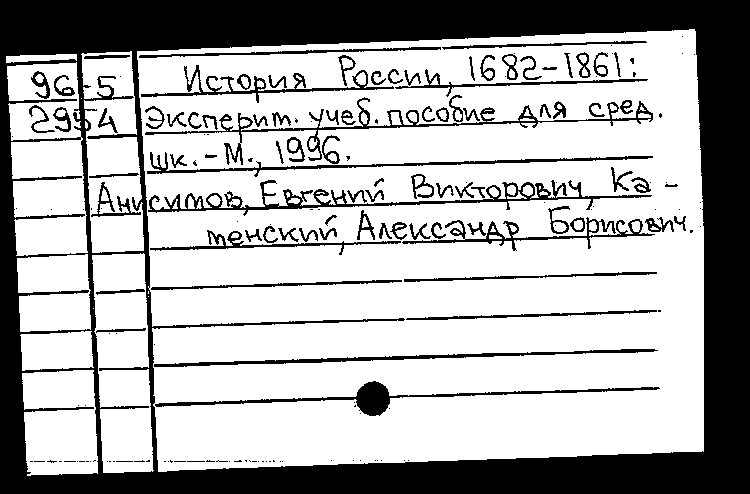 96-5 История России, 1682-1861:
2954 Эксперим. учеб. пособие для сред.
шк. - М., 1996.
Анисимов, Евгений Викторович, Ка-
менский, Александр Борисович.